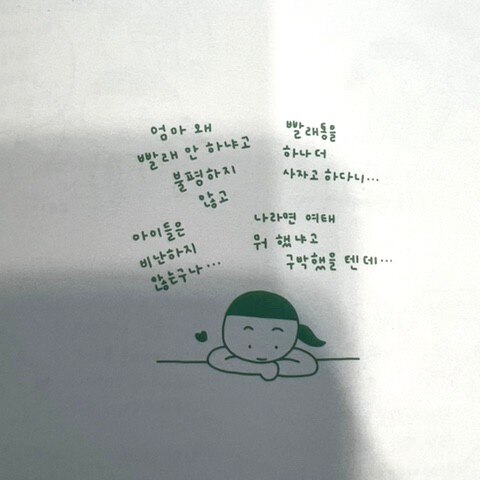 엄마 왜
빨래 안 하냐고
불평하지
않고
빨래통을
하나 더
사자고 하다니...
아이들은
비난하지
않는구나...
나라면 여태
뭐 했냐고
구박했을 텐데...